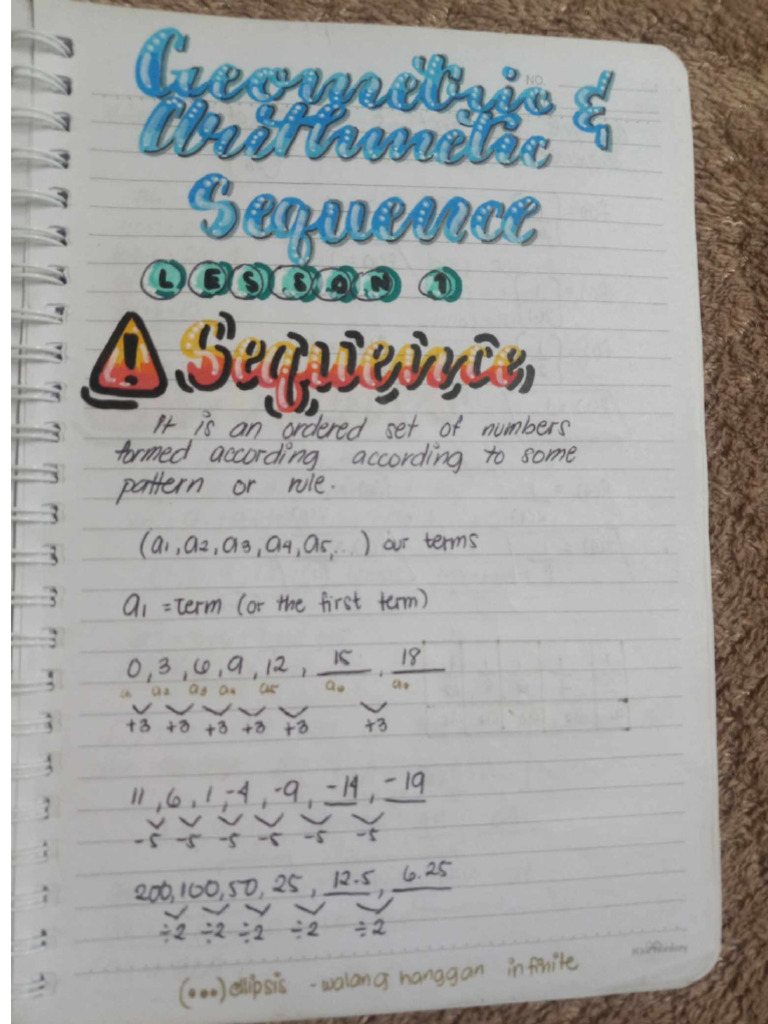 Geometric &
Arithmetic
Sequence
LESSON 1
! Sequence
It is an ordered set of numbers
formed according according to some
pattern or rule.
(a1, a2, a3, a4, a5, ...) our terms
a1 = term (or the first term)
0, 3, 6, 9, 12, 15, 18
a1 a2 a3 a4 a5 a6 a7
+3 +3 +3 +3 +3 +3
11, 6, 1, -4, -9, -14, -19
-5 -5 -5 -5 -5 -5
200, 100, 50, 25, 12.5, 6.25
÷2 ÷2 ÷2 ÷2 ÷2
(...) ellipsis - walang hanggan infinite